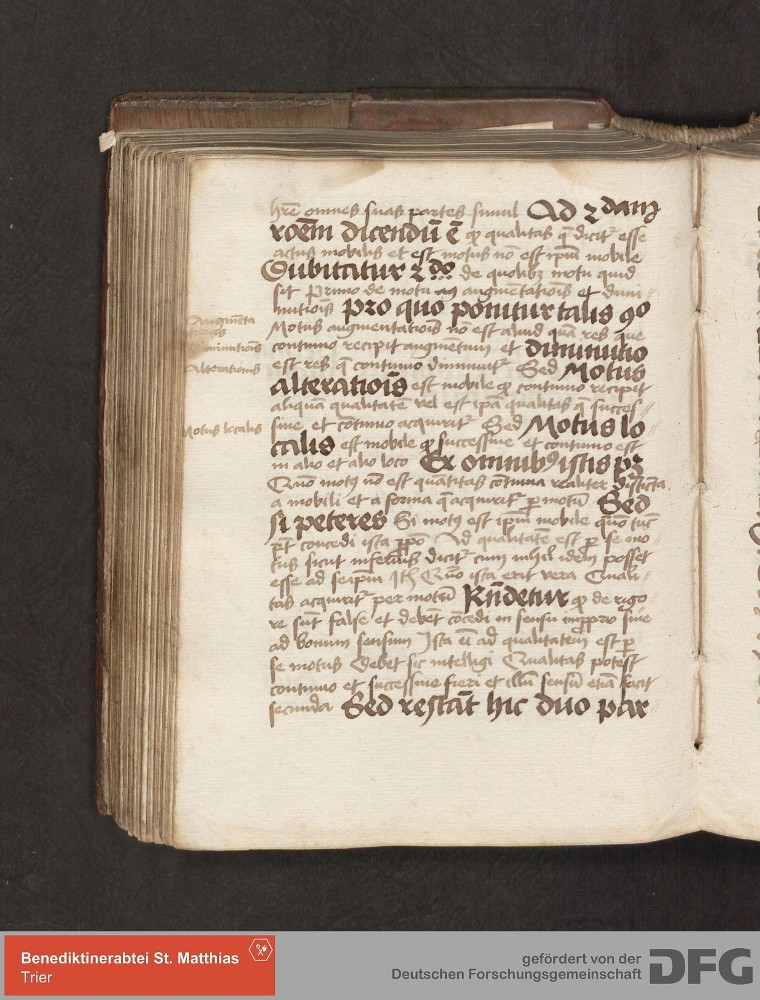 hr̄e omnes suas partes simul Ad 2dam
roēm dicendū ē qꝫ qualitas q̄ dicit᷑ esse
actus mobilis et est motus nō est ip̄m mobile
Dubitatur 2do de quolibꝫ motu quid
sit Primo de motu augmētatiōis et dimi-
nutiōis Pro quo ponitur talis 9o
Motus augmentatiōis nō est aliud quā res que
continuo recipit augmētum et diminutio
est res q̄ continuo diminuit᷑ Sed Motus
alteratiōis est mobile qꝫ continuo recipit
aliquā qualitatē vel est ip̄a qualitas q̄ succes-
siue et cōtinuo acquirit᷑ Sed Motus lo
calis est mobile qꝫ successiue et continuo est
in alio et alio loco Ex omnibꝰ istis pꝫ
Quō motꝰ nō est quātitas cōtinua realiter distīcta
a mobili et a forma q̄ acquirit᷑ ꝑ motū Sed
si peteres Si motꝰ est ip̄m mobile quō tūc
p̄t concedi ista ꝓpō Ad qualitatē est ꝑ se mo-
tus sicut inferius dicit᷑ cum nihil idem posset
esse ad seip̄m Itē Quō ista erit vera Quali-
tas acquirit᷑ per motū Rn̄detur qꝫ de rigo
re sūt false et debēt cōcedi in sensu imꝓprio siue
ad bonum sensum Ista em̄ ad qualitatem est ꝑ
se motus Debet sic intelligi Qualitas potest
continuo et successiue fieri et illū sensū etiā facit
secunda Sed restāt hic duo par
Augmēta
tionis
Diminutiōis
Alterationis
Motus localis
Benediktinerabtei St. Matthias
Trier
gefördert von der
Deutschen Forschungsgemeinschaft
DFG